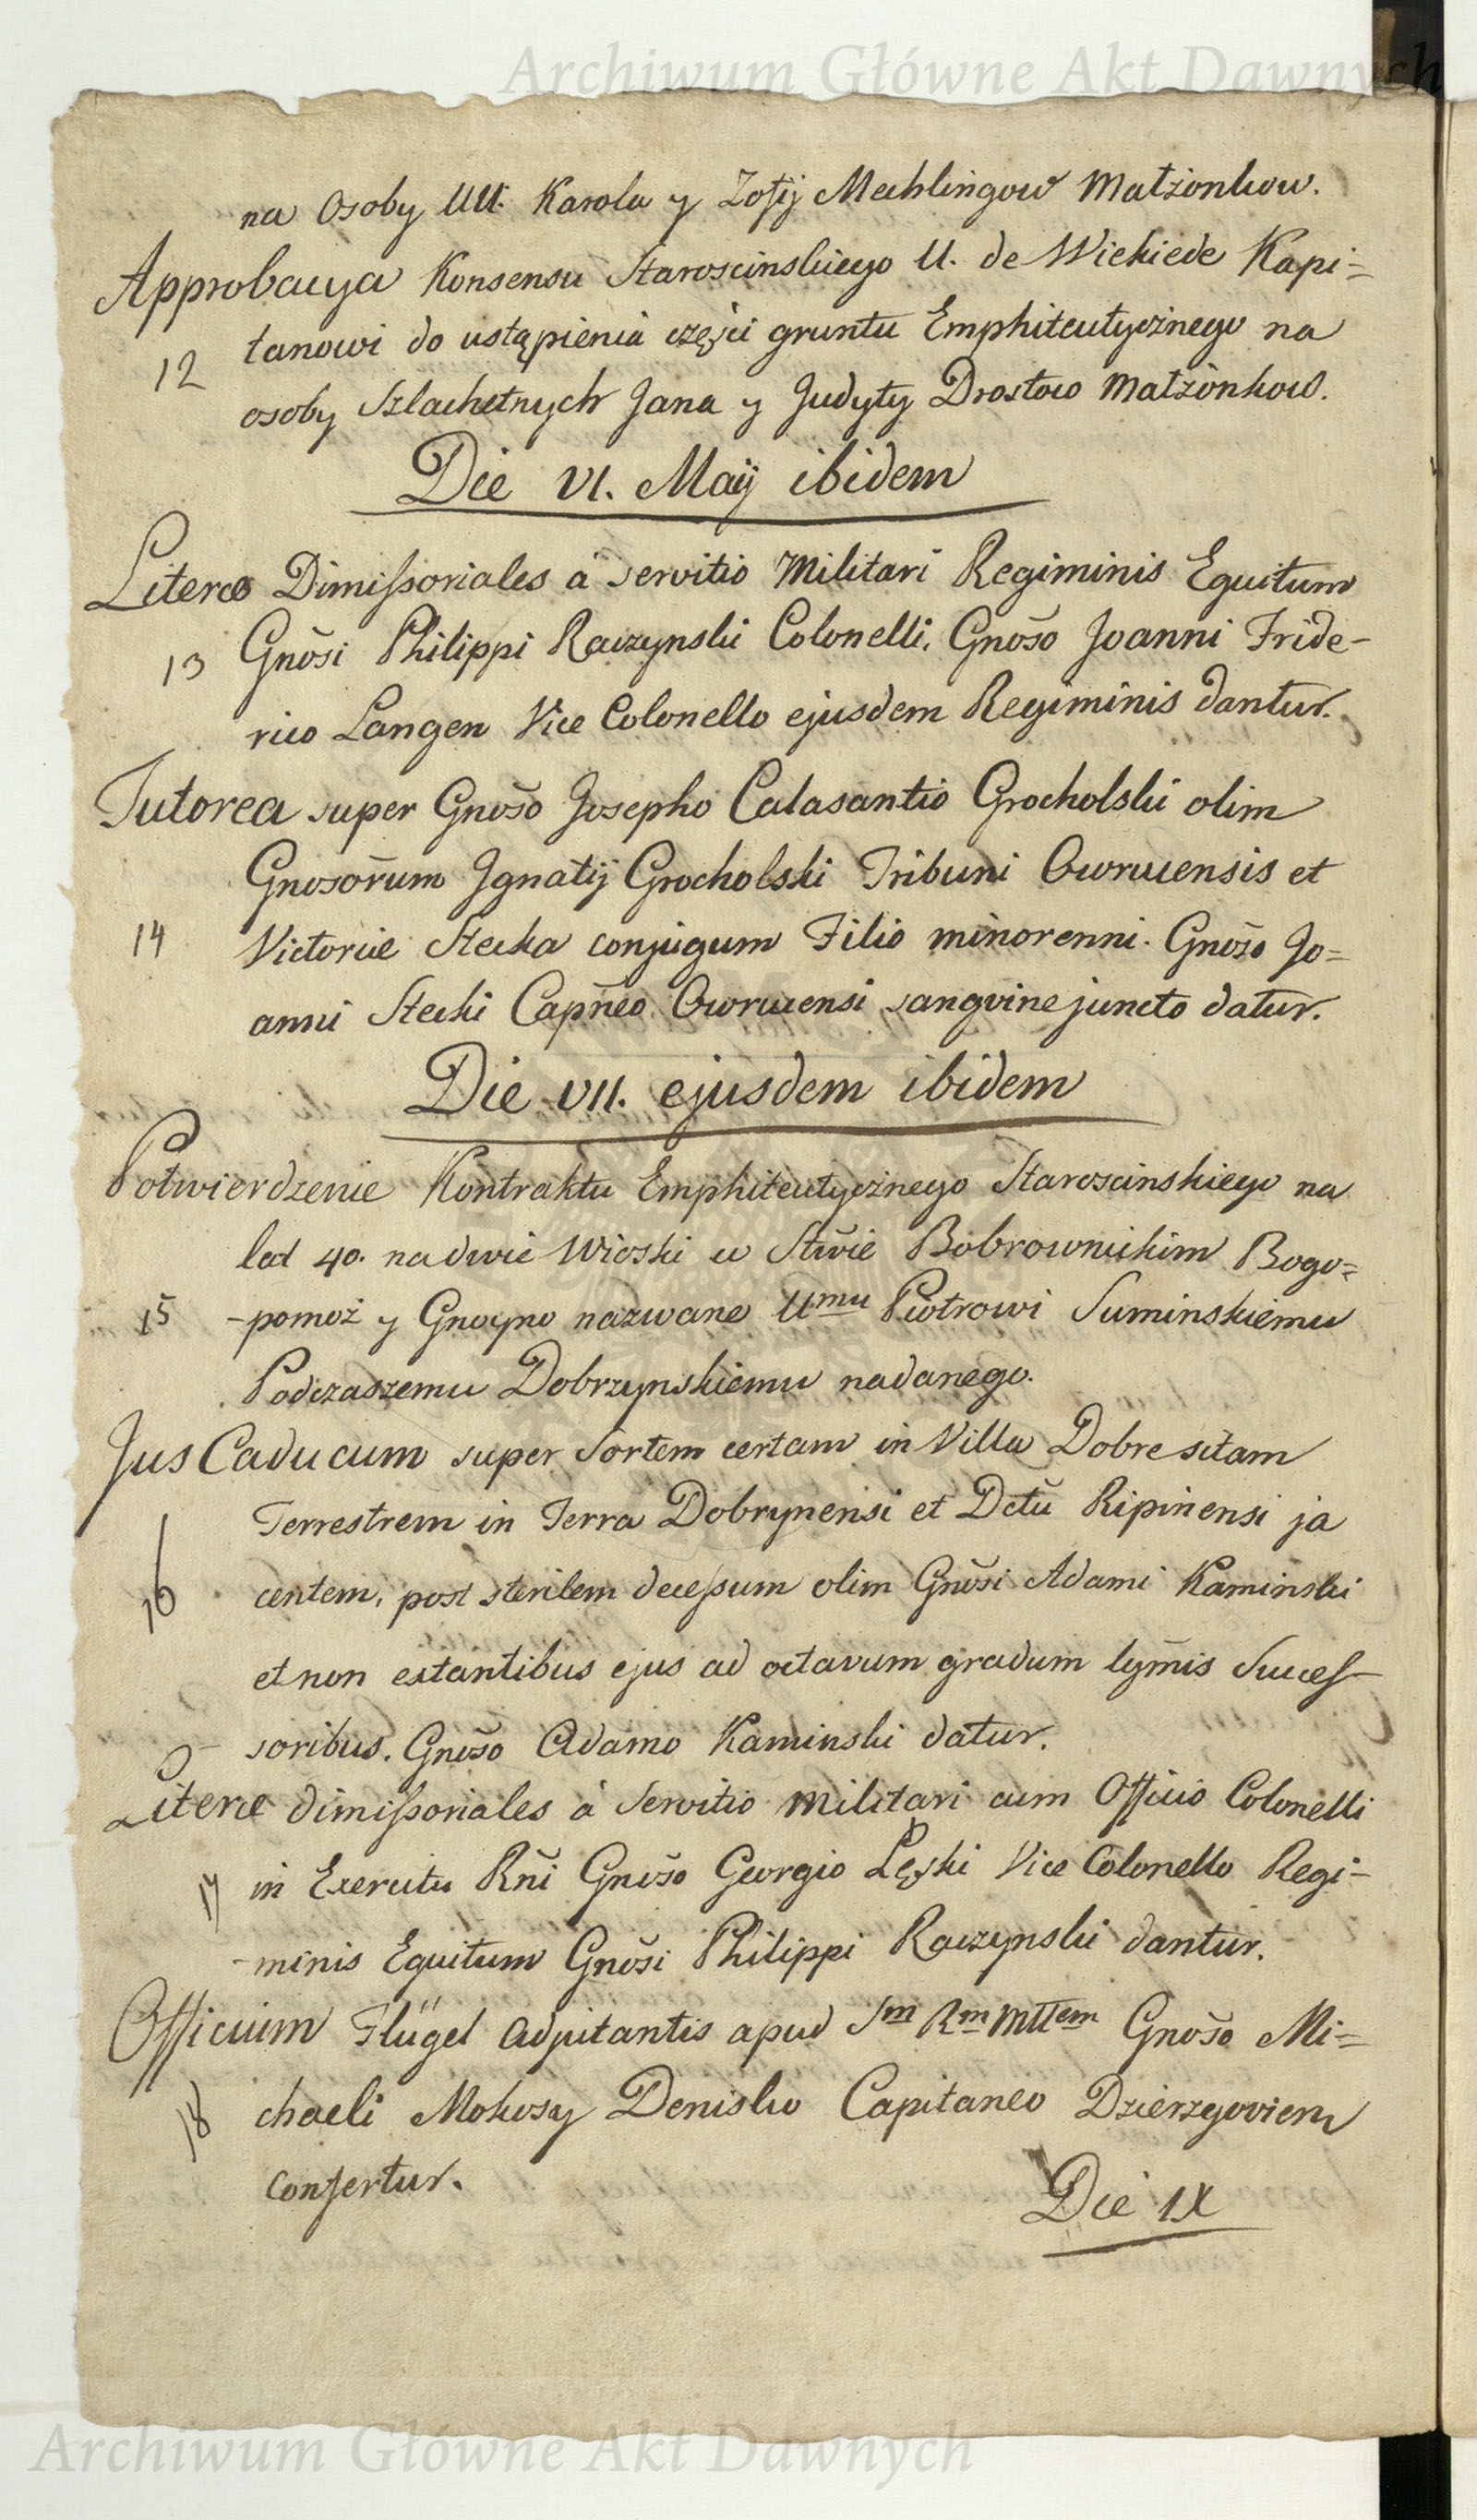 Archiwum Główne Akt Dawnych
na Osoby UU. Karola y Zofij Mechlingow Małżonkow.
Approbacya Konsensu Staroscinskiego U. de Wickiede Kapi=
12 tanowi do ustąpienia części gruntu Emphiteutycznego na
osoby Szlachetnych Jana y Judyty Drostow Małżonkow.
Die VI. Maij ibidem
Literæ Dimissoriales à servitio Militari Regiminis Equitum
13 Gnõsi Philippi Raczynski Colonelli, Gnõso Joanni Fride-
rico Langen Vice Colonello ejusdem Regiminis dantur.
Tutorea super Gnõso Josepho Calasantio Grocholski olim
Gnosorum Ignatij Grocholski Tribuni Owrucensis et
14 Victoriæ Stecka conjugum Filio minorenni. Gnõso Jo=
anni Stecki Capñeo Owrucensi sangvine juncto datur.
Die VII. ejusdem ibidem
Potwierdzenie Kontraktu Emphiteutycznego Staroscinskiego na
lad 40. na dwie Wioski w Stwie Bobrownickim Bogo=
15 -pomoż y Gnoyno nazwane Umu Piotrowi Suminskiemu
Podczaszemu Dobrzynskiemu nadanego.
Jus Caducum super Sortem certam in Villa Dobre sitam
Terrestrem in Terra Dobrynensi et Dctũ Ripinensi ja
16 centem, post sterilem decessum olim Gnõsi Adami Kaminski
et non extantibus ejus ad octavum gradum lgm̃is Succes-
soribus. Gnõso Adamo Kaminski datur.
Literæ dimissoriales à Servitio Militari cum Officio Colonelli
17 in Exercitu Rñi Gnõso Georgio Łęski Vice Colonello Regi-
-minis Equitum Gnõsi Philippi Raczynski dantur.
Officium Flügel Adjutantis apud Sm Rm Mttem Gnõso Mi=
18 chaeli Mokosy Denisko Capitaneo Dzierzgoviem
confertur.
Die IX
Archiwum Główne Akt Dawnych